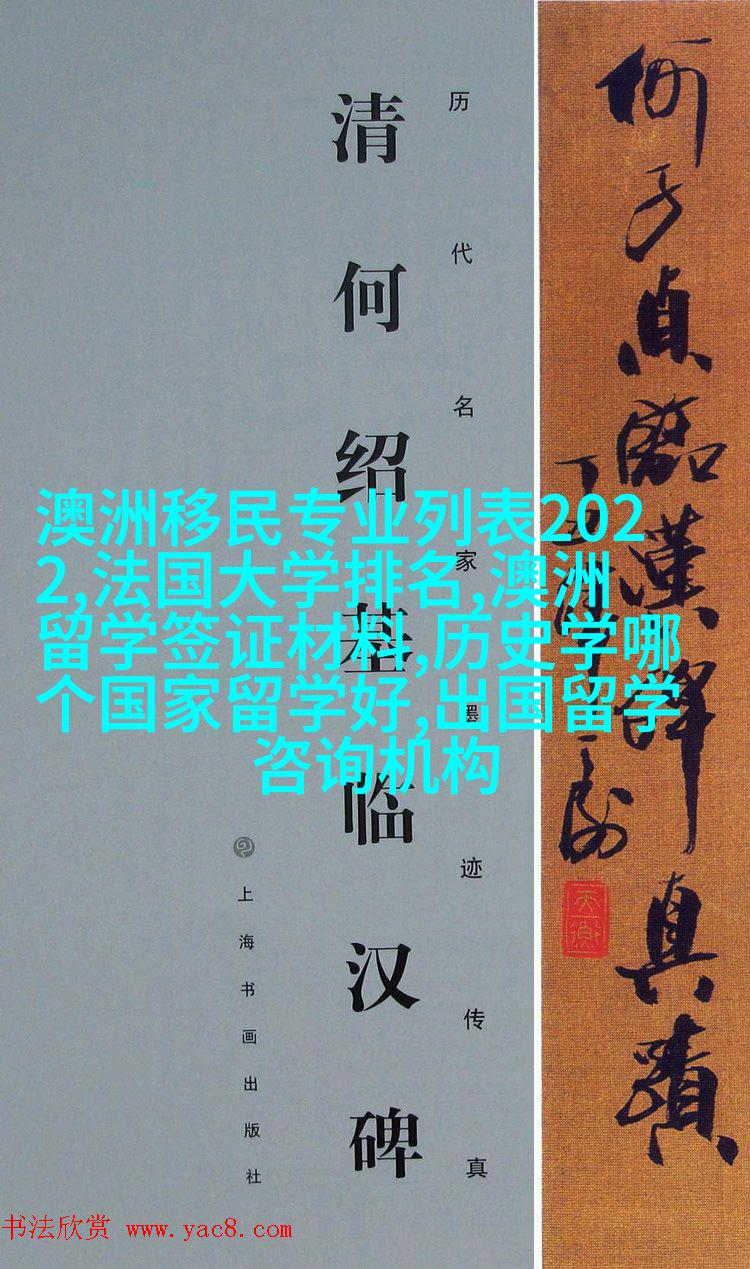 何子貞臨漢碑真蹟
历代名家墨迹传真
清何绍基临汉碑
上海书画出版社
澳洲移民专业列表202
2,法国大学排名,澳洲
留学签证材料,历史学哪
个国家留学好,出国留学
咨询机构
书法欣赏 www.yac8.com